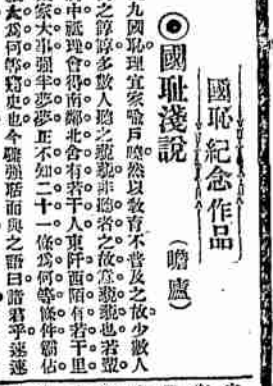 國恥紀念作品
◉國恥淺說
（瞻廬）
九國恥理宜家喻戶曉然以敎育不普及之故少數人
之諄諄多數人聽之藐藐非聽者之故意藐藐也若輩
中祇理會得南鄰北舍有若干人東阡西陌有若干里
家大事强半夢夢正不知二十一條爲何等條件霸佔
爲何等竊史也今驟强聒而與之語曰諸君乎速速